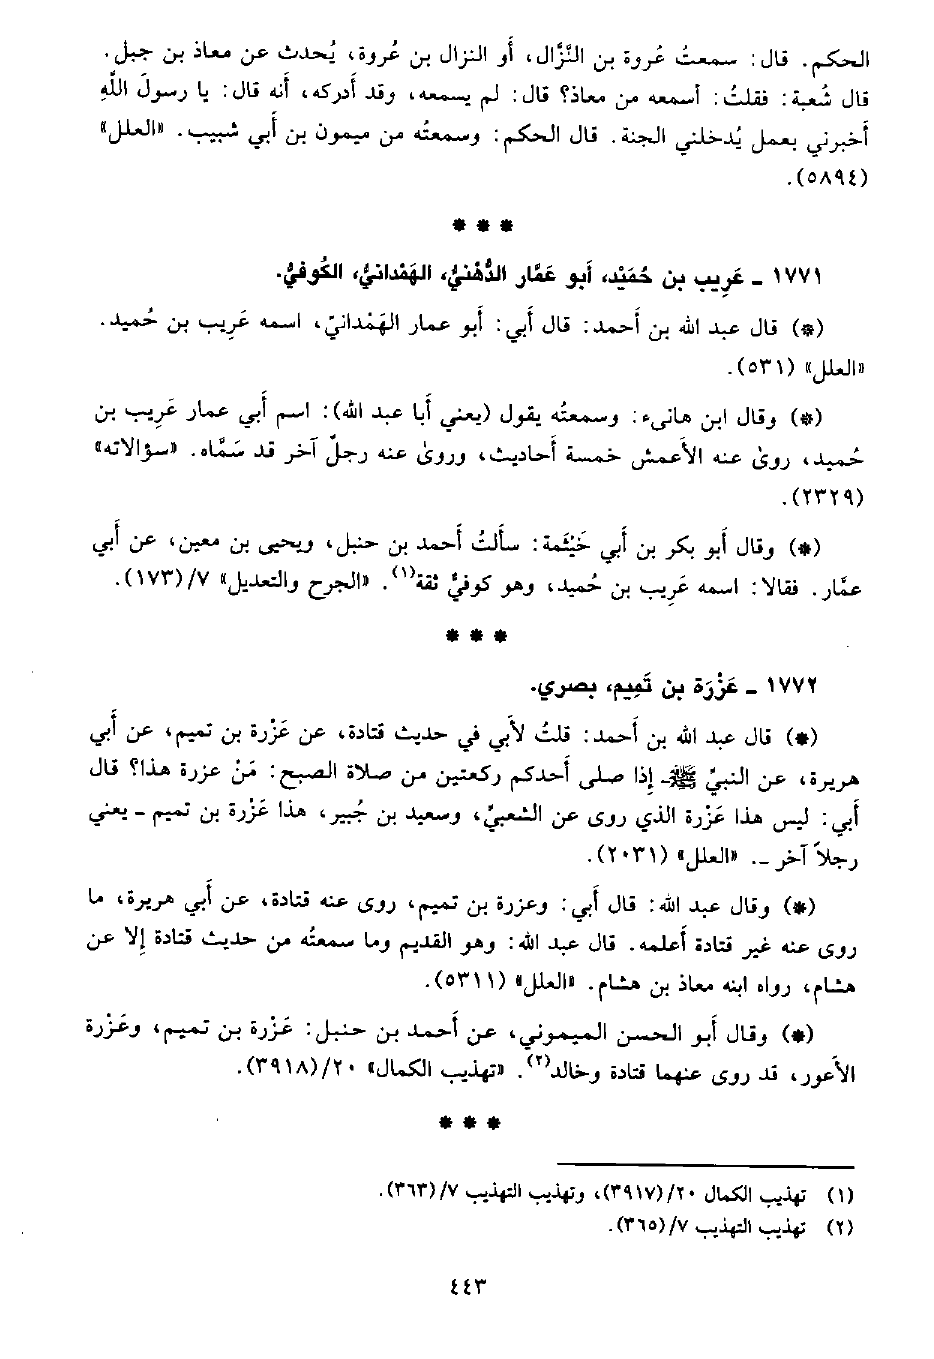 الحكم. قال: سمعتُ عُروة بن النَّزَّال، أو النزال بن عُروة، يُحدث عن معاذ بن جبل.
قال شُعبة: فقلتُ: أسمعه من معاذ؟ قال: لم يسمعه، وقد أدركه، أنه قال: يا رسولَ اللَّهِ
أخبرني بعمل يُدخلني الجنة. قال الحكم: وسمعتُه من ميمون بن أبي شبيب. «العلل»
(٥٨٩٤).
* * *
١٧٧١ - عَرِيب بن حُمَيْد، أبو عَمَّار الدُّهْنيُّ، الهَمْدانيُّ، الكُوفيُّ.
(*) قال عبد الله بن أحمد: قال أبي: أبو عمار الهَمْدانيّ، اسمه عَرِيب بن حُميد.
«العلل» (٥٣١).
(*) وقال ابن هانىء: وسمعتُه يقول (يعني أبا عبد الله): اسم أبي عمار عَرِيب بن
حُميد، روىٰ عنه الأعمش خمسة أحاديث، وروىٰ عنه رجلٌ آخر قد سَمَّاه. «سؤالاته»
(٢٣٢٩).
(*) وقال أبو بكر بن أبي خَيْثَمة: سألتُ أحمد بن حنبل، ويحيى بن معين، عن أبي
عمَّار. فقالا: اسمه عَرِيب بن حُميد، وهو كوفيٌّ ثقة(١). «الجرح والتعديل» ٧/(١٧٣).
* * *
١٧٧٢ - عَزْرَة بن تَمِيم، بصري.
(*) قال عبد الله بن أحمد: قلتُ لأبي في حديث قتادة، عن عَزْرة بن تميم، عن أبي
هريرة، عن النبيِّ ﷺ - إذا صلى أحدكم ركعتين من صلاة الصبح: مَنْ عزرة هذا؟ قال
أبي: ليس هذا عَزْرة الذي روى عن الشعبيِّ، وسعيد بن جُبير، هذا عَزْرة بن تميم - يعني
رجلاً آخر -. «العلل» (٢٠٣١).
(*) وقال عبد الله: قال أبي: وعزرة بن تميم، روى عنه قتادة، عن أبي هريرة، ما
روى عنه غير قتادة أعلمه. قال عبد الله: وهو القديم وما سمعتُه من حديث قتادة إلا عن
هشام، رواه ابنه معاذ بن هشام. «العلل» (٥٣١١).
(*) وقال أبو الحسن الميموني، عن أحمد بن حنبل: عَزْرة بن تميم، وعَزْرة
الأعور، قد روى عنهما قتادة وخالد(٢). «تهذيب الكمال» ٢٠/(٣٩١٨).
* * *
(١) تهذيب الكمال ٢٠/(٣٩١٧)، وتهذيب التهذيب ٧/(٣٦٣).
(٢) تهذيب التهذيب ٧/(٣٦٥).
٤٤٣